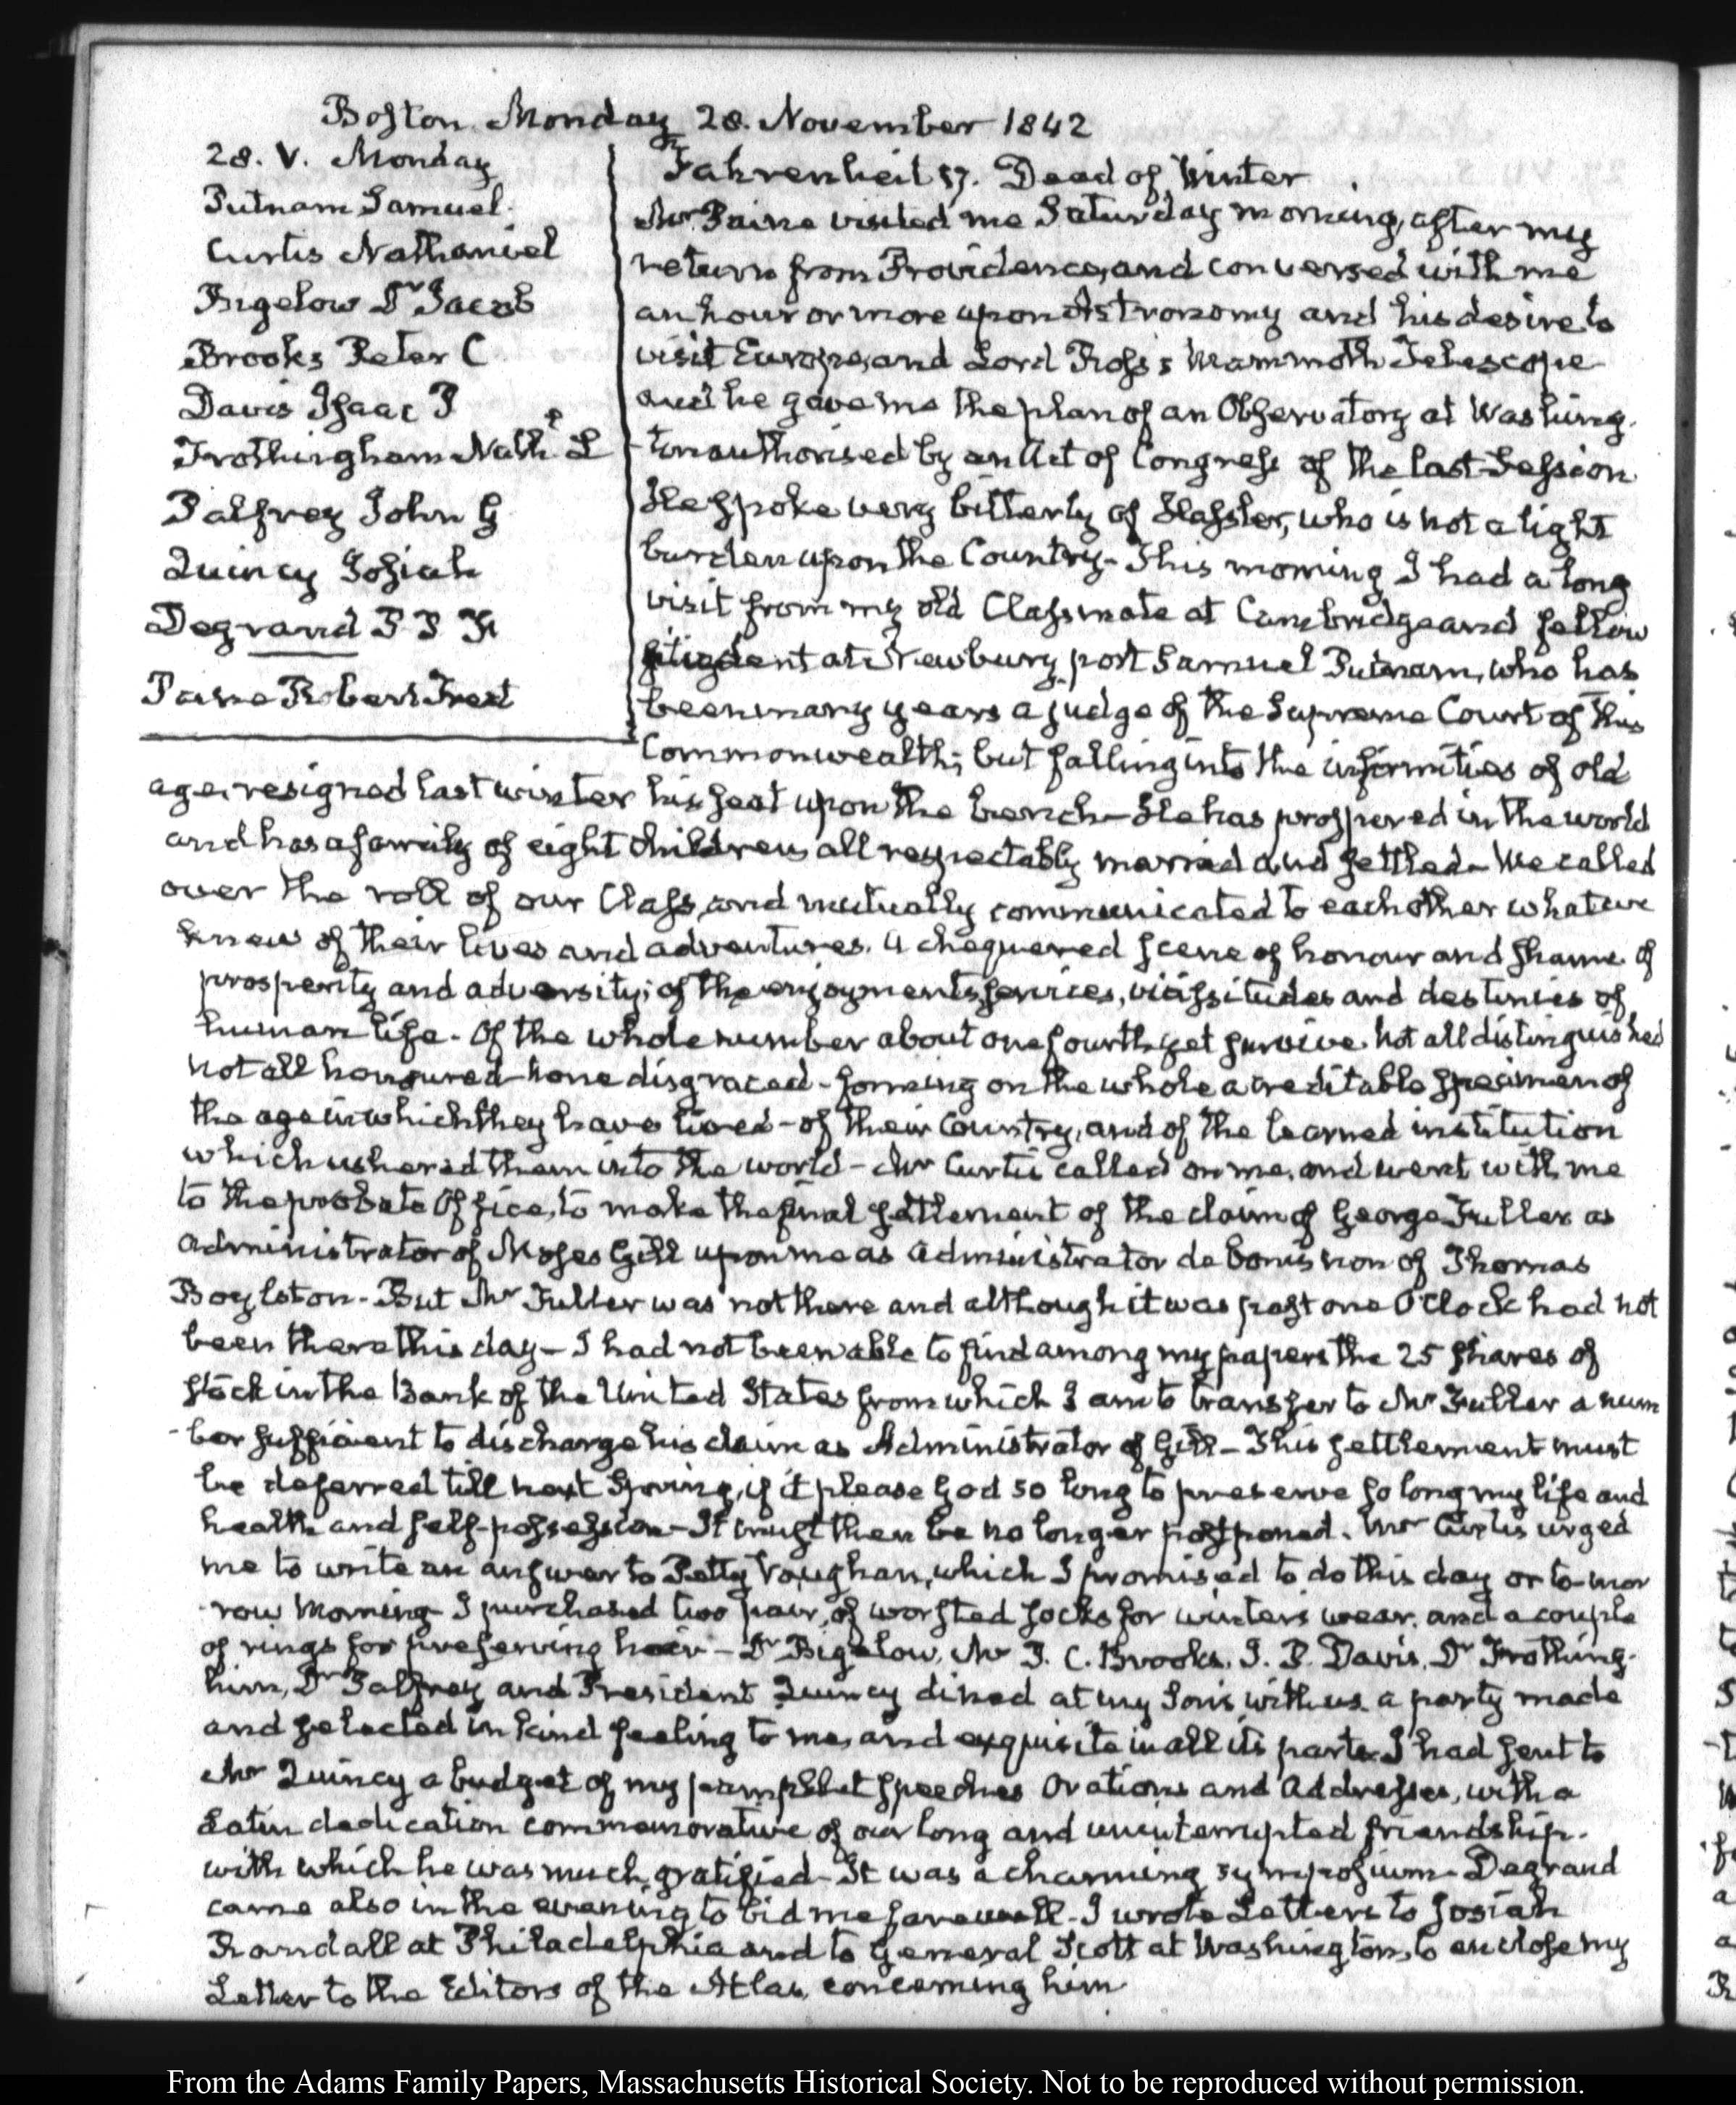 Boston Monday 28. November 1842
28. V. Monday
Putnam Samuel.
Curtis Nathaniel
Bigelow Dr Jacob
Brooks Peter C
Davis Isaac P
Frothingham Nathl. L
Palfrey John G
Quincy Josiah
Degrand P P F
Paine Robert Treat
Fahrenheit 57. Dead of Winter
Mr Paine visited me Saturday morning, after my
return from Providence, and conversed with me
an hour or more upon Astronomy and his desire to
visit Europe, and Lord Ross's Mammoth Telescope
and he gave me the plan of an Observatory at Washing-
-ton authorised by an Act of Congress of the last Session
He spoke very bitterly of Hassler, who is not a light
burden upon the Country - This morning I had a long
visit from my old Classmate at Cambridge and fellow
student at Newbury-port Samuel Putnam, who has
been many years a judge of the Supreme Court of this
Commonwealth; but falling into the infirmities of old
age, resigned last winter his seat upon the bench - He has prospered in the world
and has a family of eight children all respectably married and settled - We called
over the roll of our Class, and mutually communicated to each other what we
knew of their lives and adventures. A chequered scene of honour and shame of
prosperity and adversity; of the enjoyments, services, vicissitudes and destinies of
human life - Of the whole number about one fourth yet survive. Not all distinguished
not all honoured - none disgraced - forming on the whole a creditable specimen of
the age in which they have lived - of their Country, and of the learned institution
which ushered them into the world - Mr Curtis called on me, and went with me
to the probate Office, to make the final settlement of the claim of George Fuller as
administrator of Moses Gill upon me as administrator de bonis non of Thomas
Boylston - But Mr Fuller was not there and although it was past one O'Clock had not
been there this day - I had not been able to find among my papers the 25 shares of
stock in the Bank of the United States from which I am to transfer to Mr Fuller a num
-ber sufficient to discharge his claim as Administrator of Gill - This settlement must
be deferred till next Spring, if it please God so long to preserve so long my life and
health and self-possession - It must then be no longer postponed. Mr Curtis urged
me to write an answer to Petty Vaughan, which I promised to do this day or to-mor
-row Morning - I purchased two pair, of worsted socks for winter's wear, and a couple
of rings for preserving hair - Dr Bigelow, Mr P. C. Brooks, I. P. Davis, Dr Frothing-
ham, Dr Palfrey and President Quincy dined at my Son's with us. a party made
and selected in kind feeling to me, and exquisite in all its parts. I had sent to
Mr Quincy a budget of my pamphlet speeches Orations and Addresses, with a
Latin dedication commemorative of our long and uninterrupted friendship.
with which he was much gratified - It was a charming symposium - Degrand
came also in the evening to bid me farewell - I wrote Letters to Josiah
Randall at Philadelphia and to General Scott at Washington, to enclose my
Letter to the Editors of the Atlas, concerning him
From the Adams Family Papers, Massachusetts Historical Society. Not to be reproduced without permission.